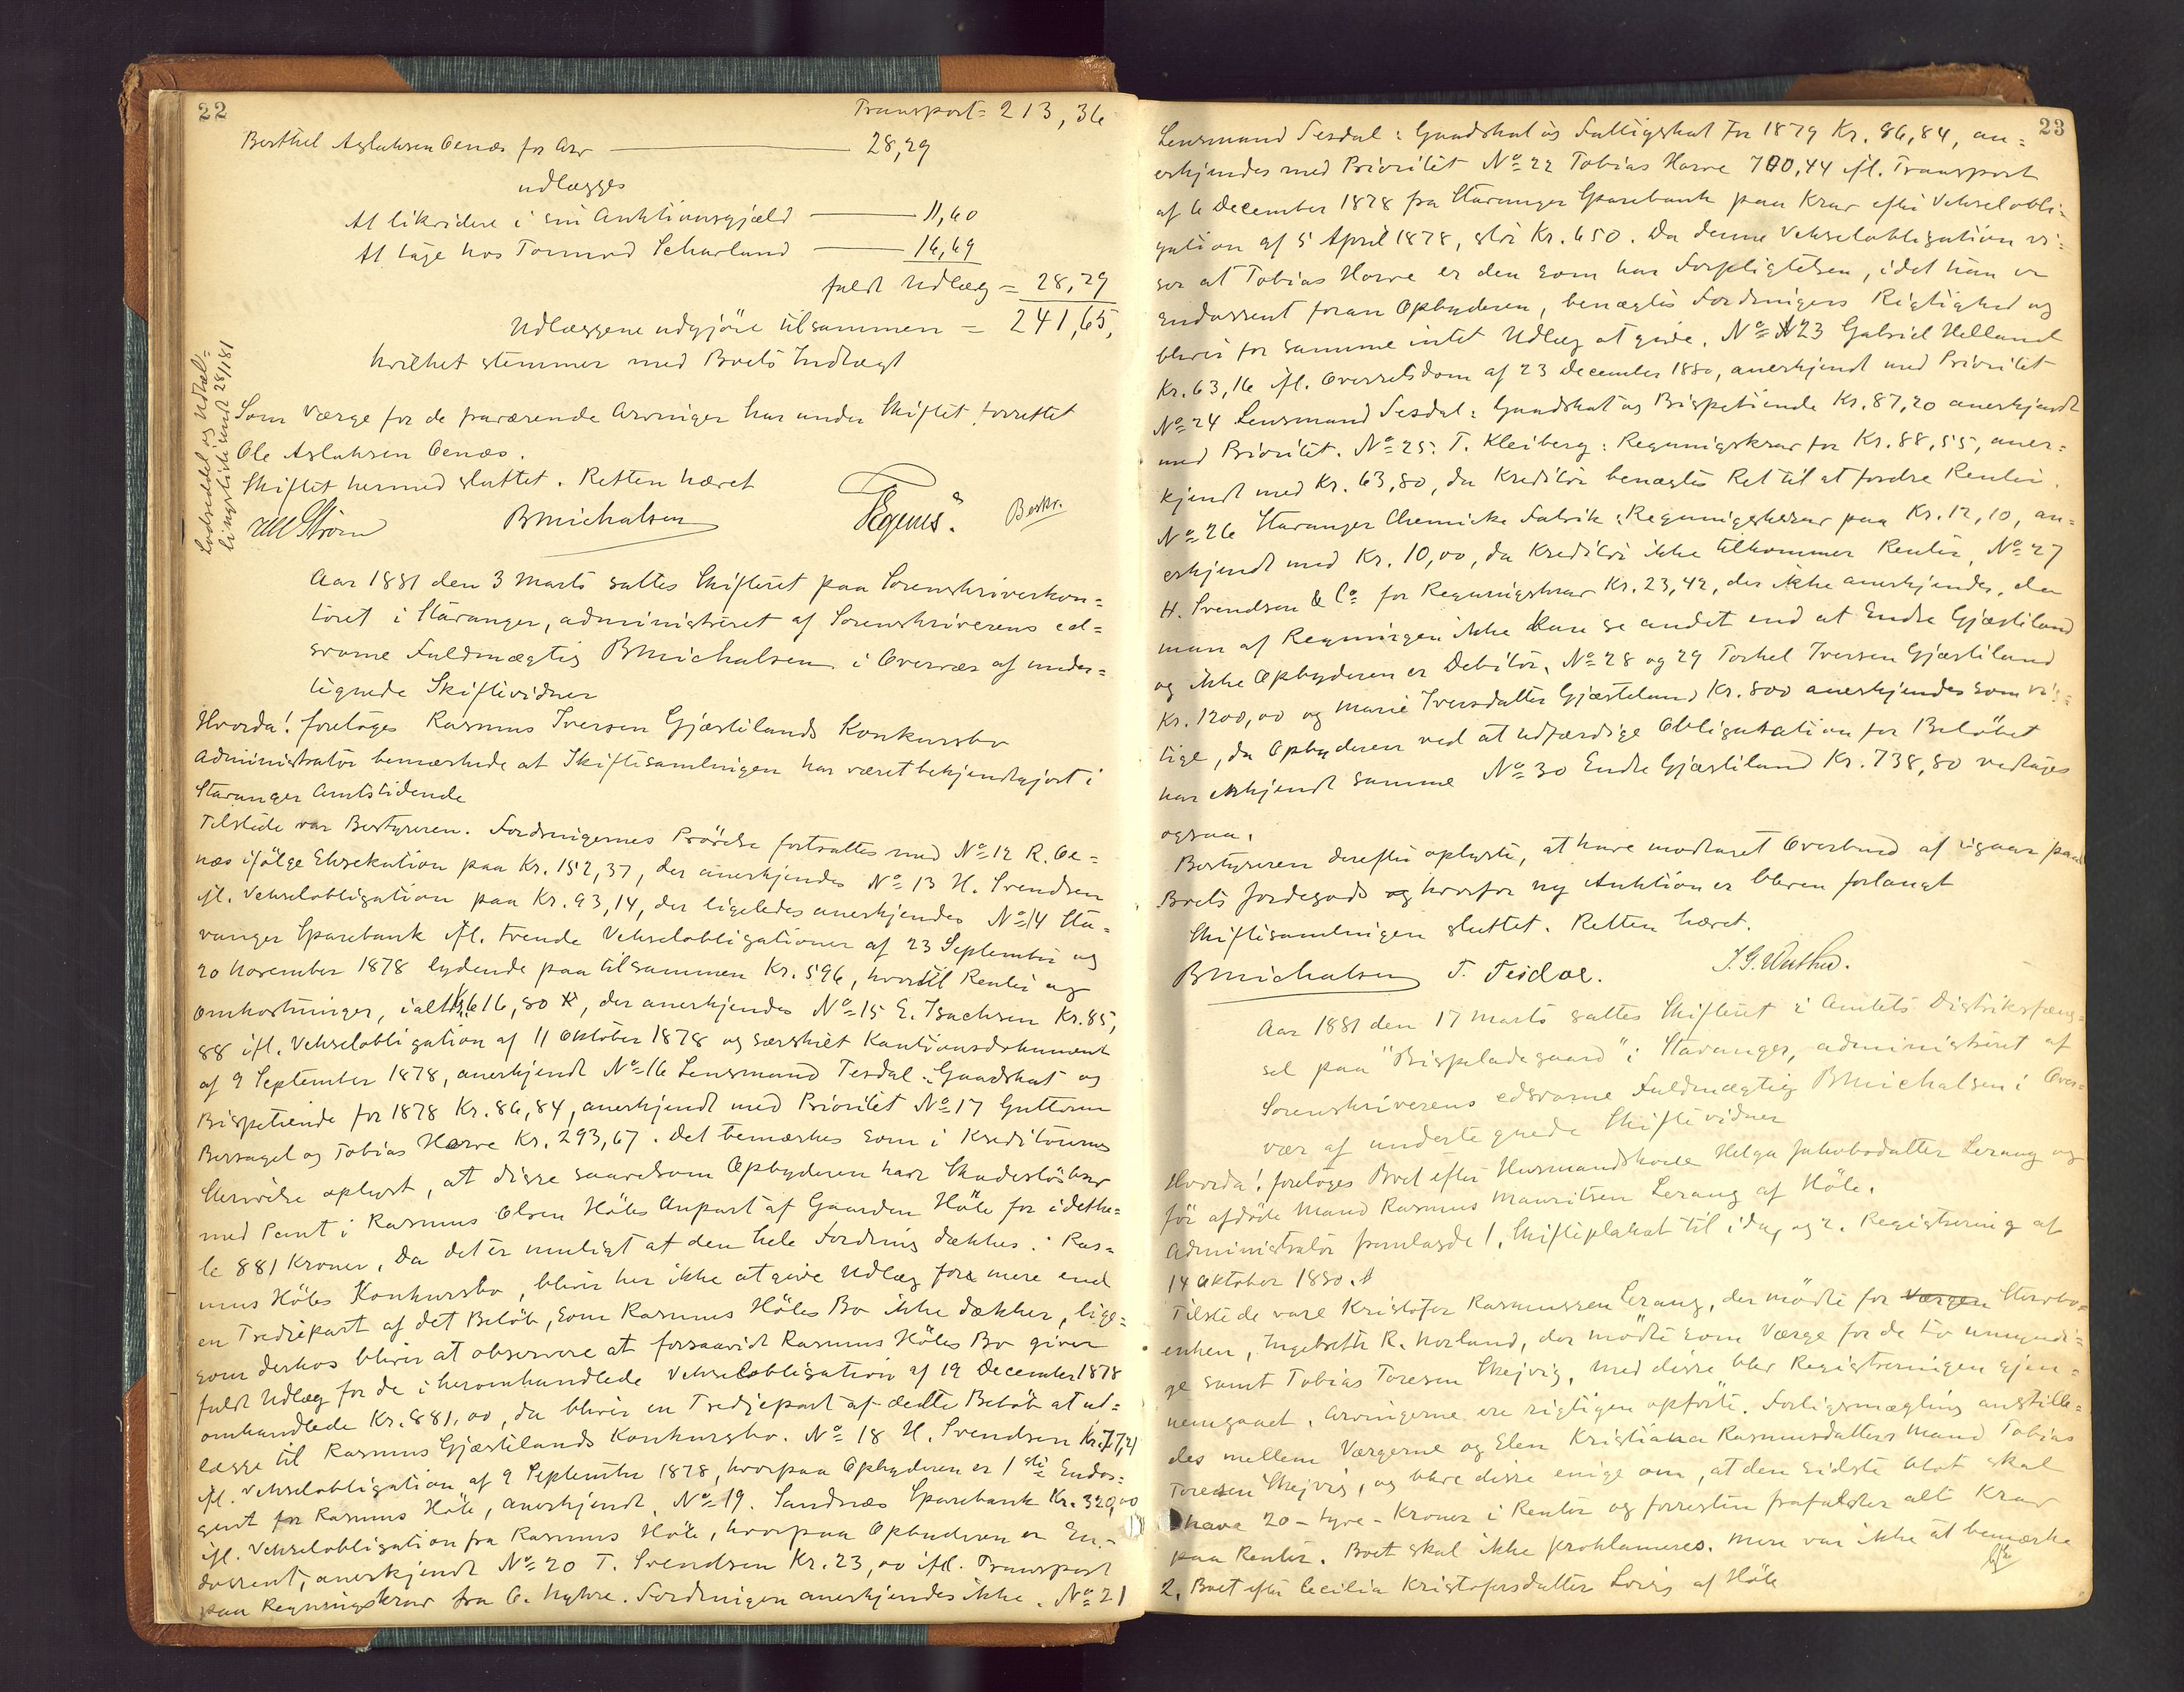 22
Transport = 213,36
Berthel Aslaksen Oenæs for Arv 28,29
udlægges
At likvidere i sin Auktionsgjæld 11,60
At tage hos Tormod Schurland 16,69
fuldt Udlæg = 28,29
Udlæggene udgjöre tilsammen = 241,65,
hvilket stemmer med Boets Indtægt
Lodseddel og Udtæl-
lingsliste udst 28/1 81
Som Værge for de fraværende Arvinger har under Skiftet forrettet
Ole Aslaksen Oenæs.
Skiftet hermed sluttet. Retten hævet
Ström BMichalsen Bestr.
Aar 1881 den 3 Marts sattes Skifteret paa Sorenskriverkon=
toret i Stavanger, administreret af Sorenskriverens ed=
svorne Fuldmægtig BMichalsen i Overvær af under=
tegnede Skiftevidner
Hvorda! foretoges Rasmus Iversen Gjæstilands Konkursbo
Administrator bemærkede at Skiftesamlingen har været bekjendtgjort i
Stavanger Amtstidende
Tilstede var Bestyreren. Fordringernes Prövelse fortsattes med No 12 R. Oe=
næs ifölge Eksekution paa Kr. 152,37, der anerkjendes No 13 H. Svendsen
ifl. Vekselobligation paa Kr. 93,14, der ligeledes anerkjendes No 14 Sta=
vanger Sparebank ifl. tvende Vekselobligationer af 23 September og
20 November 1878 lydende paa tilsammen Kr. 596, hvortil Renter og
Omkostninger, ialt Kr. 616,80, der anerkjendes No 15 E. Isachsen Kr. 85,
88 ifl. Vekselobligation af 11 Oktober 1878 og særskilt Kautionsdokument
af 9 September 1878, anerkjendt No 16 Lensmand Tesdal: Gaardskat og
Bispetiende for 1878 Kr. 86,84, anerkjendt med Prioritet No 17 Guttorm
Bersagel og Tobias Harve Kr. 293,67. Det bemærkes som i Kreditorernes
Skrivelse oplyst, at disse saavelsom Opbyderen har Skadeslösbrev
med Pant i Rasmus Olsen Höles Anpart af Gaarden Höle for idethe=
le 881 Kroner. Da det er muligt at den hele Fordring dækkes i Ras=
mus Höles Konkursbo, bliver her ikke at give Udlæg for mere end
en Trediepart af det Beløb, som Rasmus Höles Bo ikke dækker, lige=
som derhos bliver at observere at forsaavidt Rasmus Höles Bo giver
fuldt Udlæg for de i heromhandlede Vekselobligation af 19 December 1878
omhandlede Kr. 881,00, da bliver en Trediepart af dette Beløb at ud=
lægge til Rasmus Gjæstilands Konkursbo. No 18 H. Svendsen Kr. 77,21
ifl. Vekselobligation af 9 September 1878, hvorpaa Opbyderen er 1ste Endos=
gent for Rasmus Höle, anerkjendt. No 19. Sandnæs Sparebank Kr. 320,00
ifl. Vekselobligation fra Rasmus Höle, hvorpaa Opbyderen er En=
dossent, anerkjendt No 20 T. Svendsen Kr. 23,00 ifl. Transport
paa Regningskrav fra O. Nykre. Fordringen anerkjendes ikke. No 21
23
Lensmand Tesdal: Gaardskat og Fattigskat for 1879 Kr. 86,84, an=
erkjendes med Prioritet No 22 Tobias Harve 700,44 ifl. Transport
af 6 December 1878 fra Stavanger Sparebank paa Krav efter Vekselobli=
gation af 5 April 1878, stor Kr. 650. Da denne Vekselobligation vi=
ser at Tobias Harve er den som har Forpligtelsen, idet han er
Endossent foran Opbyderen, benægtes Fordringens Rigtighed og
bliver for samme intet Udlæg at give. No 23 Gabriel Helland
Kr. 63,16 ifl. Overretsdom af 23 December 1880, anerkjendt med Prioritet
No 24 Lensmand Tesdal: Gaardskat og Bispetiende Kr. 87,20 anerkjendt
med Prioritet. No 25: T. Kleiberg: Regningskrav for Kr. 88,55, aner=
kjendt med Kr. 63,80, da Kreditor benægtes Ret til at fordre Renter.
No 26 Stavanger Chemiske Fabrik: Regningskrav paa Kr. 12,10, an=
erkjendt med Kr. 10,00, da Kreditor ikke tilkommer Renter, No 27
H. Svendsen & Co for Regningskrav Kr. 23,42, der ikke anerkjendes, da
man af Regningen ikke kan se andet end at Endre Gjæstiland
og ikke Opbyderen er Debitor. No 28 og 29 Torkel Iversen Gjæstiland
Kr. 1200,00 og Marie Iversdatter Gjæsteland Kr. 800 anerkjendes som rig=
tige, da Opbyderen ved at udfærdige Obligation for Beløbet
har erkjendt samme No 30 Endre Gjæstiland Kr. 738,80 vedtages
ogsaa.
Bestyreren derefter oplyste, at have modtaget Overbud af igaar paa
Boets Jordegods og hvorfor ny Auktion er bleven forlangt
Skiftesamlingen sluttet. Retten hævet.
BMichalsen T. Tesdal.
Aar 1881 den 17 Marts sattes Skifteret i Amtets Distriksfæng=
sel paa "Bispeladegaard" i Stavanger, administreret af
Sorenskriverens edsvorne Fuldmægtig BMichalsen i Over=
vær af undertegnede Skiftevidner
Hvorda! foretoges Boet efter Husmandskone Helga Jakobsdatter Lerang og
för afdöde Mand Rasmus Mauritsen Lerang af Höle.
Administrator fremlagde 1. Skifteplakat til idag og 2. Registrering af
14 Oktober 1880.
Tilstede vare Kristofer Rasmussen Lerang, der mödte for Værgen Stervbo=
enken, Ingebreth R. Norland, der mödte som Værge for de to umyndi=
ge samt Tobias Toresen Skejvig, med disse blev Registreringen gjen=
nemgaaet. Arvingerne ere rigtigen opförte. Forligsmægling anstille=
des mellem Værgerne og Elen Kristiana Rasmusdatters Mand Tobias
Toresen Skejvig, og bleve disse enige om, at den sidste blot skal
have 20 - tyve - Kroner i Renter og forresten frafalder alt Krav
paa Renter. Boet skal ikke proklameres. Mere var ikke at bemærke
2. Boet efter Cecilia Kristofersdatter Loivig af Höle